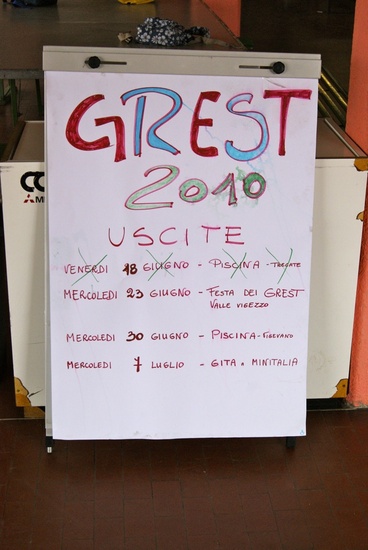 GREST
2010
USCITE
VENERDI 18 GIUGNO - PISCINA - TRECATE
MERCOLEDI 23 GIUGNO - FESTA DEI GREST
VALLE VIGEZZO
MERCOLEDI 30 GIUGNO - PISCINA - VIGEVANO
MERCOLEDI 7 LUGLIO - GITA A MINITALIA